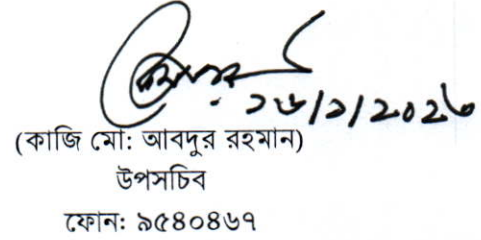 ১৬/১/২০২৩
(কাজি মো: আবদুর রহমান)
উপসচিব
ফোন: ৯৫৪০৪৬৭